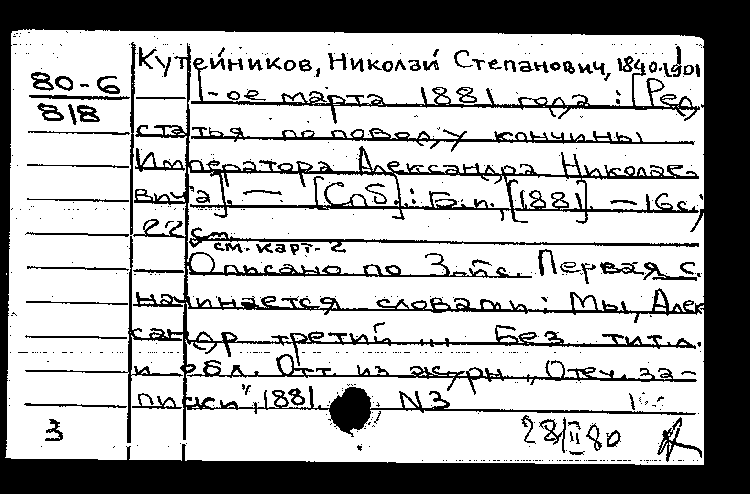 Кутейников, Николай Степанович, 1840-1901
80-6
818
1-ое марта 1881 года: [Ред.
статья по поводу кончины
Императора Александра Николае-
вича]. — [Спб.]: Б.и., [1881]. — 16с.;
22 см.
см. карт. 2
Описано по 3-й с. Первая с.
начинается словами: Мы, Алек
сандр третий ... Без тит.л.
и обл. Отт. из журн. „Отеч. за-
писки", 1881. N3
3
28/II 80